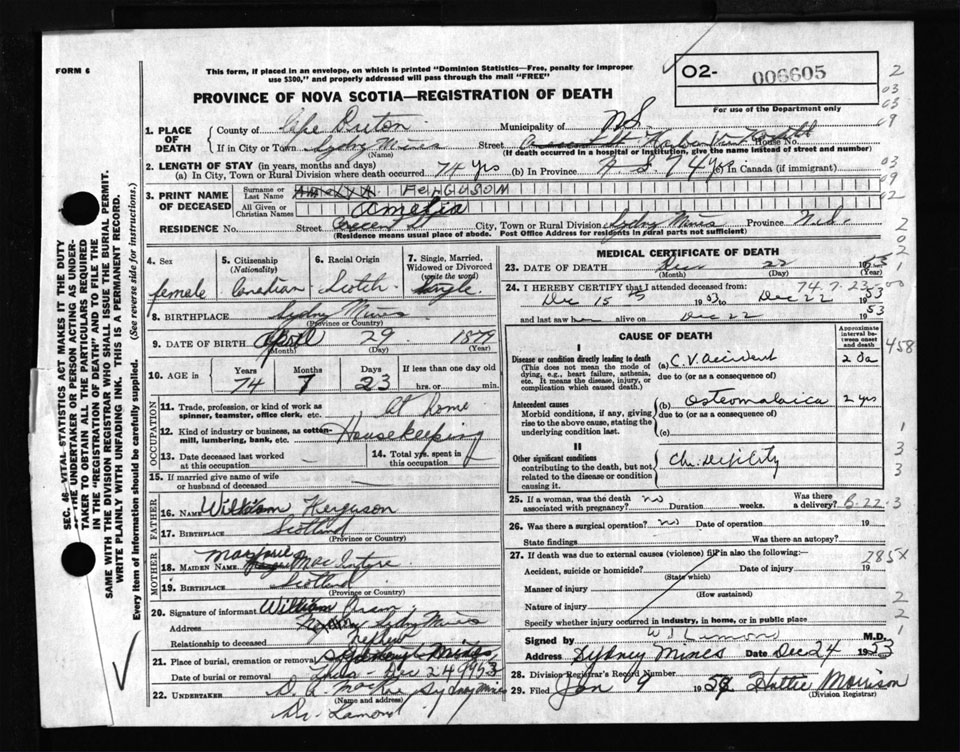 FORM 6
This form, if placed in an envelope, on which is printed "Dominion Statistics—Free, penalty for improper
use $300," and properly addressed will pass through the mail "FREE"
O2- 006605
For use of the Department only
PROVINCE OF NOVA SCOTIA—REGISTRATION OF DEATH
1. PLACE OF DEATH
County of Cape Breton Municipality of N.S.
If in City or Town Sydney Mines (Name) Street House No.
(If death occurred in a hospital or institution, give the name instead of street and number)
2. LENGTH OF STAY (in years, months and days)
(a) In City, Town or Rural Division where death occurred 74 yrs (b) In Province N.S. 74 yrs (c) In Canada (if immigrant)
3. PRINT NAME OF DECEASED
Surname or Last Name Ferguson
All Given or Christian Names Amelia
RESIDENCE No. Street City, Town or Rural Division Sydney Mines Province N.S.
(Residence means usual place of abode. Post Office Address for residents in rural parts not sufficient)
4. Sex female
5. Citizenship (Nationality) Canadian
6. Racial Origin Scotch
7. Single, Married, Widowed or Divorced (write the word) Single
8. BIRTHPLACE Sydney Mines
(Province or Country)
9. DATE OF BIRTH April 29 1879
(Month) (Day) (Year)
10. AGE in Years 74 Months 7 Days 23 If less than one day old
hrs. or min.
OCCUPATION
11. Trade, profession, or kind of work as spinner, teamster, office clerk, etc. At home
12. Kind of industry or business, as cotton-mill, lumbering, bank, etc. Housekeeping
13. Date deceased last worked at this occupation
14. Total yrs. spent in this occupation
15. If married give name of wife or husband of deceased
FATHER
16. NAME William Ferguson
17. BIRTHPLACE Scotland
(Province or Country)
MOTHER
18. MAIDEN NAME Marjorie MacIntyre
19. BIRTHPLACE Scotland
(Province or Country)
20. Signature of informant William
Address Sydney Mines
Relationship to deceased nephew
21. Place of burial, cremation or removal Sydney Mines,
Date of burial or removal Dec 24 1953
22. UNDERTAKER Sydney Mines
(Name and address)
Dr. Lamond
MEDICAL CERTIFICATE OF DEATH
23. DATE OF DEATH Dec 22 1953
(Month) (Day) (Year)
74.7.23
24. I HEREBY CERTIFY that I attended deceased from:
Dec 15 1953 to Dec 22 1953
and last saw her alive on Dec 22 1953
CAUSE OF DEATH
Approximate interval between onset and death
I
Disease or condition directly leading to death (a) C.V. accident 2 da
(This does not mean the mode of dying, e.g., heart failure, asthenia, etc. It means the disease, injury, or complication which caused death.)
due to (or as a consequence of)
Antecedent causes (b) Osteomalacia 2 yrs
Morbid conditions, if any, giving rise to the above cause, stating the underlying condition last.
due to (or as a consequence of)
(c)
II
Other significant conditions
contributing to the death, but not related to the disease or condition causing it.
Ch. Debility
25. If a woman, was the death associated with pregnancy? no Duration weeks. Was there a delivery?
B-22-3
26. Was there a surgical operation? no Date of operation 19
State findings Was there an autopsy?
27. If death was due to external causes (violence) fill in also the following:
Accident, suicide or homicide? (State which) Date of injury 19
785X
Manner of injury
(How sustained)
Nature of injury
Specify whether injury occurred in industry, in home, or in public place
Signed by M.D.
Address Sydney Mines Date Dec 24 1953
28. Division Registrar's Record Number
29. Filed Jan 9 Hattie Morrison
(Division Registrar)
SEC. 46—VITAL STATISTICS ACT MAKES IT THE DUTY
OF THE UNDERTAKER OR PERSON ACTING AS UNDERTAKER TO OBTAIN ALL THE PARTICULARS REQUIRED
IN THE "REGISTRATION OF DEATH" AND TO FILE THE
SAME WITH THE DIVISION REGISTRAR WHO SHALL ISSUE THE BURIAL PERMIT.
WRITE PLAINLY WITH UNFADING INK. THIS IS A PERMANENT RECORD.
Every item of information should be carefully supplied. (See reverse side for instructions.)